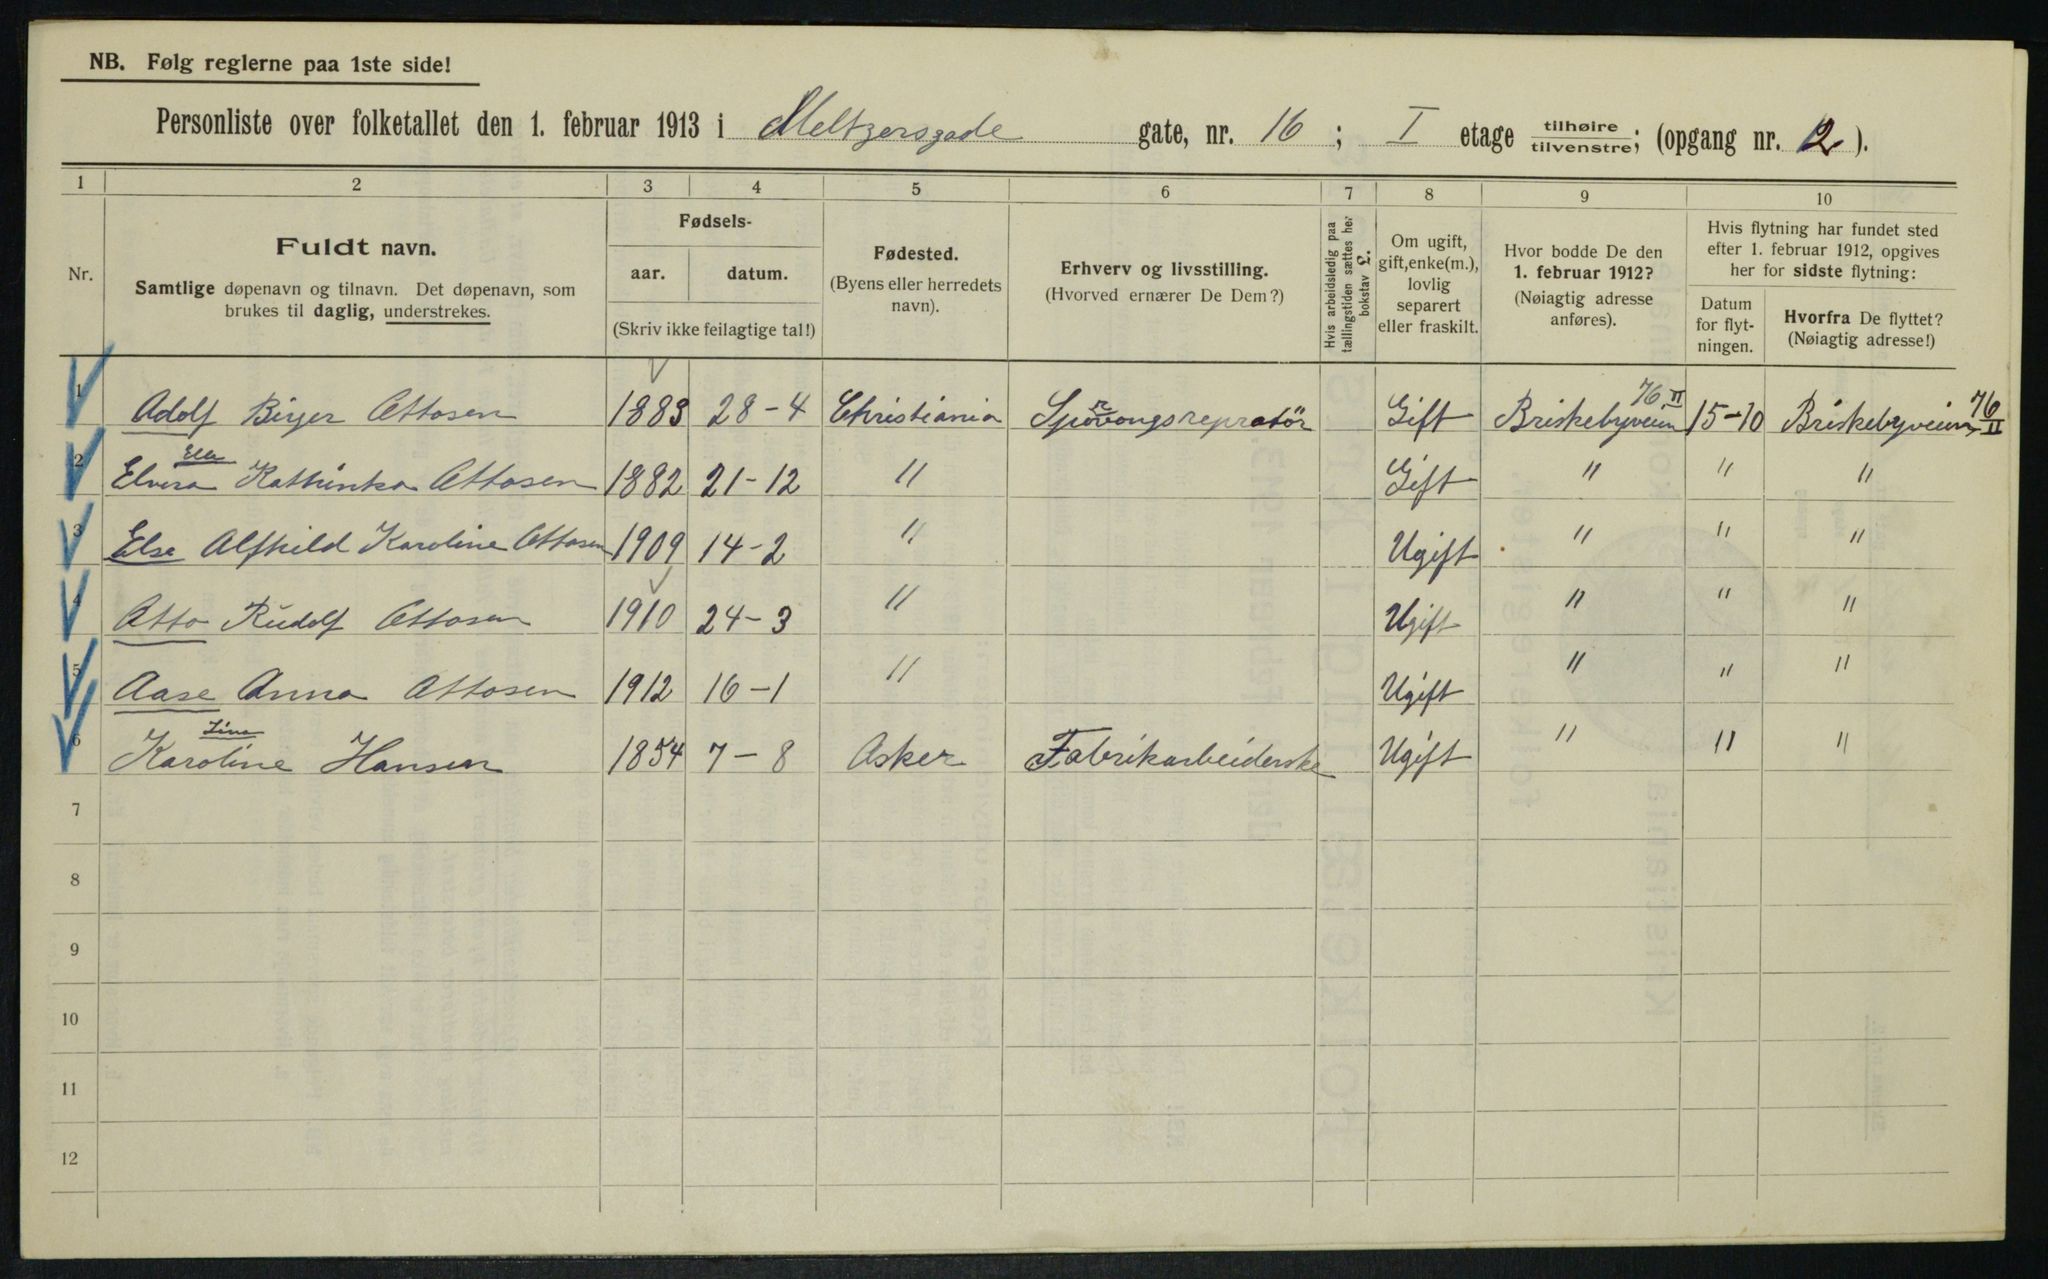 NB. Følg reglerne paa 1ste side!
Personliste over folketallet den 1. februar 1913 i Meltzersgade gate, nr. 16 ; I etage tilhøire tilvenstre; (opgang nr. 2 ).
1 2 3 4 5 6 7 8 9 10
Nr.
Fuldt navn.
Samtlige døpenavn og tilnavn. Det døpenavn, som
brukes til daglig, understrekes.
Fødsels-
aar. datum.
(Skriv ikke feilagtige tal!)
Fødested.
(Byens eller herredets
navn).
Erhverv og livsstilling.
(Hvorved ernærer De Dem?)
Hvis arbeidsledig paa
tællingstiden sættes her
bokstav L.
Om ugift,
gift, enke(m.),
lovlig
separert
eller fraskilt.
Hvor bodde De den
1. februar 1912?
(Nøiagtig adresse
anføres).
Hvis flytning har fundet sted
efter 1. februar 1912, opgives
her for sidste flytning:
Datum
for flyt-
ningen.
Hvorfra De flyttet?
(Nøiagtig adresse!)
1 Adolf Birger Ottosen 1883 28-4 Christiania Gift Briskebyveien 76 II 15-10 Briskebyveien 76 II
Ella
2 Elvira Kathinka Ottosen 1882 21-12 " Gift " " "
3 Else Alfhild Karoline Ottosen 1909 14-2 " Ugift " " "
4 Otto Rudolf Ottosen 1910 24-3 " Ugift " " "
5 Aase Anna Ottosen 1912 16-1 " Ugift " " "
Lina
6 Karoline Hansen 1854 7-8 Asker Fabrikarbeiderske Ugift " " "
7
8
9
10
11
12